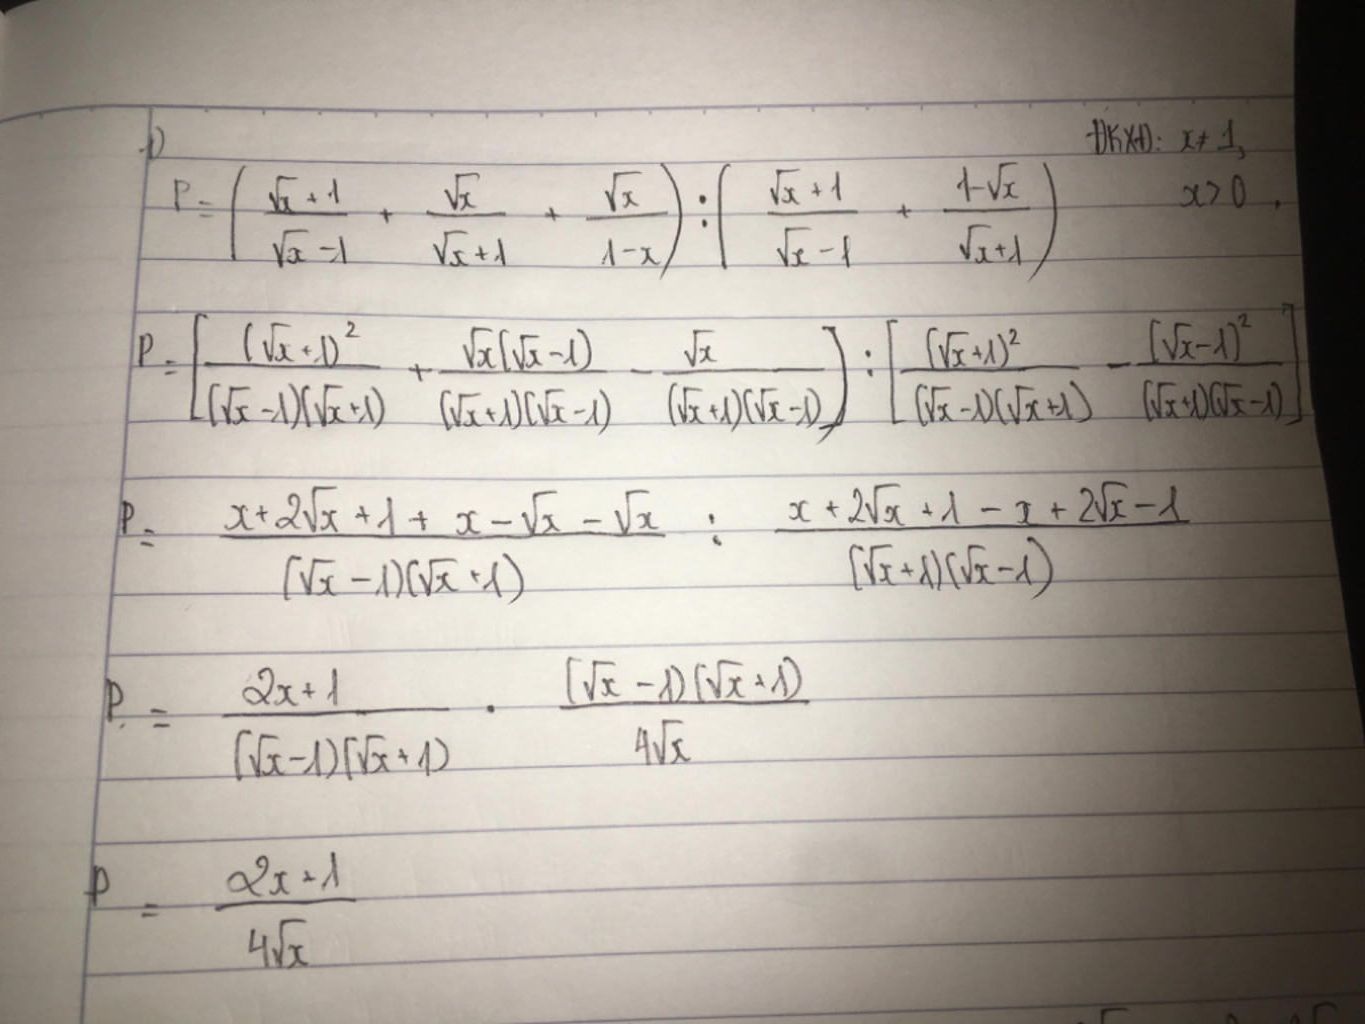 1)
ĐKXĐ: x ≠ 1,
P = ( (√x + 1)/(√x - 1) + √x/(√x + 1) + √x/(1 - x) ) : ( (√x + 1)/(√x - 1) + (1 - √x)/(√x + 1) )
x > 0.
P = [ (√x + 1)²/((√x - 1)(√x + 1)) + √x(√x - 1)/((√x + 1)(√x - 1)) - √x/((√x + 1)(√x - 1)) ] : [ (√x + 1)²/((√x - 1)(√x + 1)) - (√x - 1)²/((√x + 1)(√x - 1)) ]
P = (x + 2√x + 1 + x - √x - √x)/((√x - 1)(√x + 1)) : (x + 2√x + 1 - x + 2√x - 1)/((√x + 1)(√x - 1))
P = (2x + 1)/((√x - 1)(√x + 1)) . ((√x - 1)(√x + 1))/(4√x)
P = (2x + 1)/(4√x)